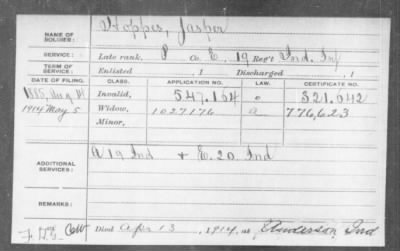 NAME OF SOLDIER: Hoppes, Jasper
SERVICE: Late rank, P Co. E, 19 Reg't Ind. Inf
TERM OF SERVICE: Enlisted , 1 Discharged , 1
DATE OF FILING. CLASS. APPLICATION NO. LAW. CERTIFICATE NO.
Aug Invalid, 547.164 321.642
1914 May 5 Widow, 1027176 a 776,623
Minor,
ADDITIONAL SERVICES: A 19 Ind + E. 20 Ind
REMARKS:
Died Apr 13, 1914, at Anderson, Ind